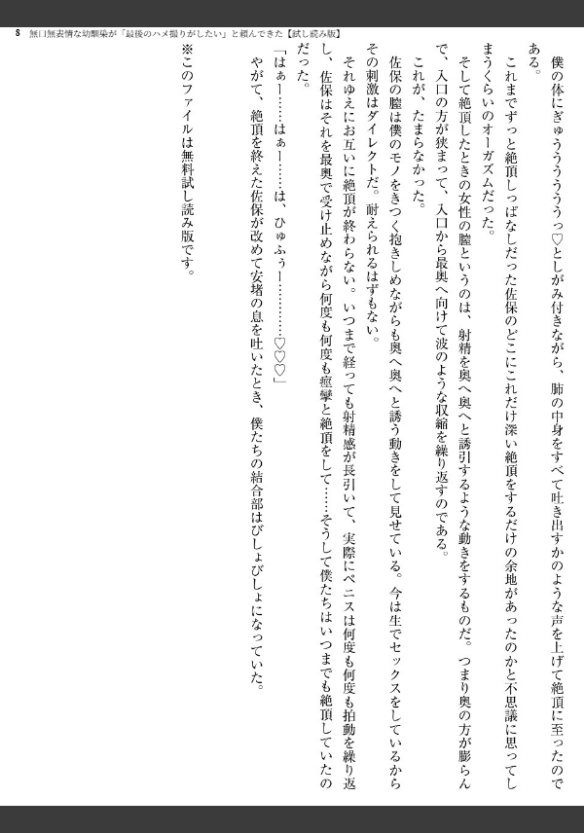 8 無口無表情な幼馴染が「最後のハメ撮りがしたい」と頼んできた【試し読み版】
僕の体にぎゅうううううっ♡としがみ付きながら、肺の中身をすべて吐き出すかのような声を上げて絶頂に至ったので
ある。
これまでずっと絶頂しっぱなしだった佐保のどこにこれだけ深い絶頂をするだけの余地があったのかと不思議に思ってし
まうくらいのオーガズムだった。
そして絶頂したときの女性の膣というのは、射精を奥へ奥へと誘引するような動きをするものだ。つまり奥の方が膨らん
で、入口の方が狭まって、入口から最奥へ向けて波のような収縮を繰り返すのである。
これが、たまらなかった。
佐保の膣は僕のモノをきつく抱きしめながらも奥へ奥へと誘う動きをして見せている。今は生でセックスをしているから
その刺激はダイレクトだ。耐えられるはずもない。
それゆえにお互いに絶頂が終わらない。いつまで経っても射精感が長引いて、実際にペニスは何度も何度も拍動を繰り返
し、佐保はそれを最奥で受け止めながら何度も何度も痙攣と絶頂をして……そうして僕たちはいつまでも絶頂していたの
だった。
「はぁー……はぁー……は、ひゅふぅー…………♡♡♡」
やがて、絶頂を終えた佐保が改めて安堵の息を吐いたとき、僕たちの結合部はびしょびしょになっていた。
※このファイルは無料試し読み版です。